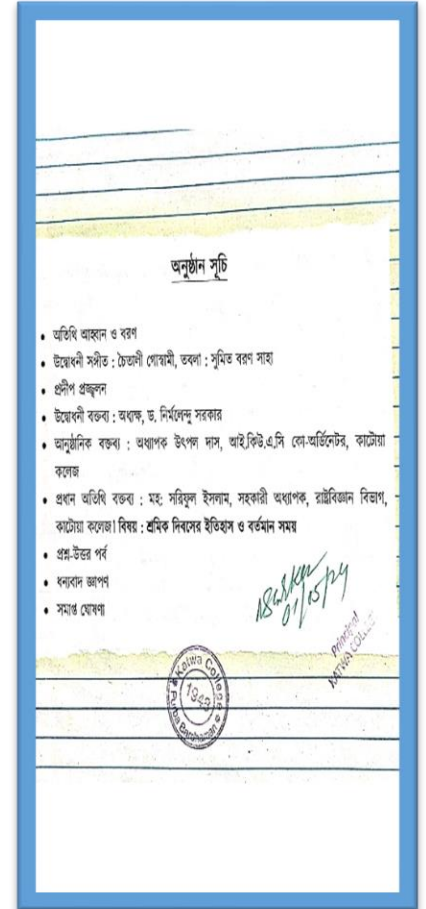 অনুষ্ঠান সূচি
• অতিথি আহ্বান ও বরণ
• উদ্বোধনী সঙ্গীত : চৈতালী গোস্বামী, তবলা : সুমিত বরণ সাহা
• প্রদীপ প্রজ্জ্বলন
• উদ্বোধনী বক্তব্য : অধ্যক্ষ, ড. নির্মলেন্দু সরকার
• আনুষ্ঠানিক বক্তব্য : অধ্যাপক উৎপল দাস, আই.কিউ.এ.সি কো-অর্ডিনেটর, কাটোয়া
কলেজ
• প্রধান অতিথি বক্তব্য : মহ: সরিফুল ইসলাম, সহকারী অধ্যাপক, রাষ্ট্রবিজ্ঞান বিভাগ,
কাটোয়া কলেজ। বিষয় : শ্রমিক দিবসের ইতিহাস ও বর্তমান সময়
• প্রশ্ন-উত্তর পর্ব
• ধন্যবাদ জ্ঞাপণ
• সমাপ্ত ঘোষণা
01/05/24
Principal
KATWA COLLEGE
Katwa College
1948
Purba Bardhaman